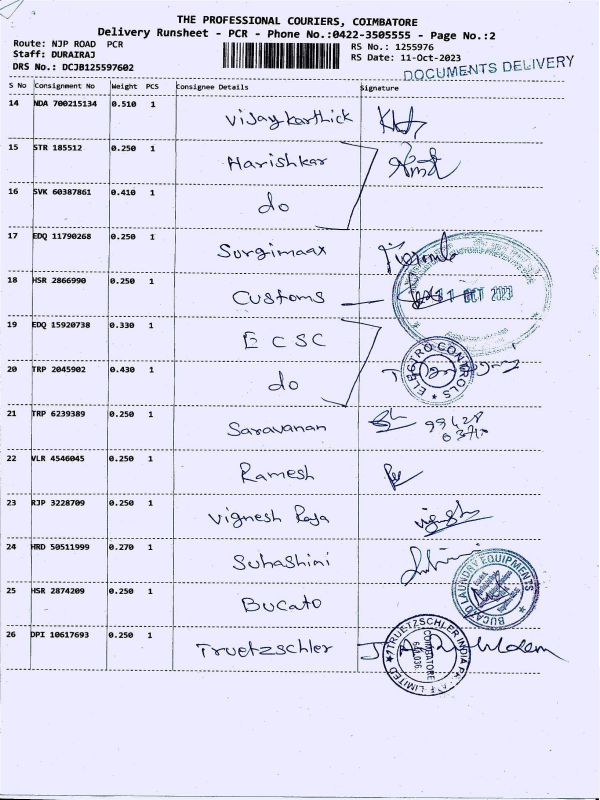 THE PROFESSIONAL COURIERS, COIMBATORE
Delivery Runsheet - PCR - Phone No.:0422-3505555 - Page No.:2
Route: NJP ROAD PCR
RS No.: 1255976
Staff: DURAIRAJ
RS Date: 11-Oct-2023
DRS No.: DCJB125597602
DOCUMENTS DELIVERY
S No Consignment No Weight PCS Consignee Details Signature
14 NDA 700215134 0.510 1 Vijay karthick
15 STR 185512 0.250 1 Harishkar
16 SVK 60387861 0.410 1 do
17 EDQ 11790268 0.250 1 Surgimaax
18 HSR 2866990 0.250 1 Customs
11 OCT 2023
19 EDQ 15920738 0.330 1 E C S C
20 TRP 2045902 0.430 1 do
ELECTRO CONTROLS
21 TRP 6239389 0.250 1 Saravanan
99428
22 VLR 4546045 0.250 1 Ramesh
23 RJP 3228709 0.250 1 Vignesh Raja
24 HRD 50511999 0.270 1 Suhashini
25 HSR 2874209 0.250 1 Bucato
BUCATO LAUNDRY EQUIPMENTS
26 DPI 10617693 0.250 1 Truetzschler
TRUETZSCHLER INDIA LIMITED
COIMBATORE